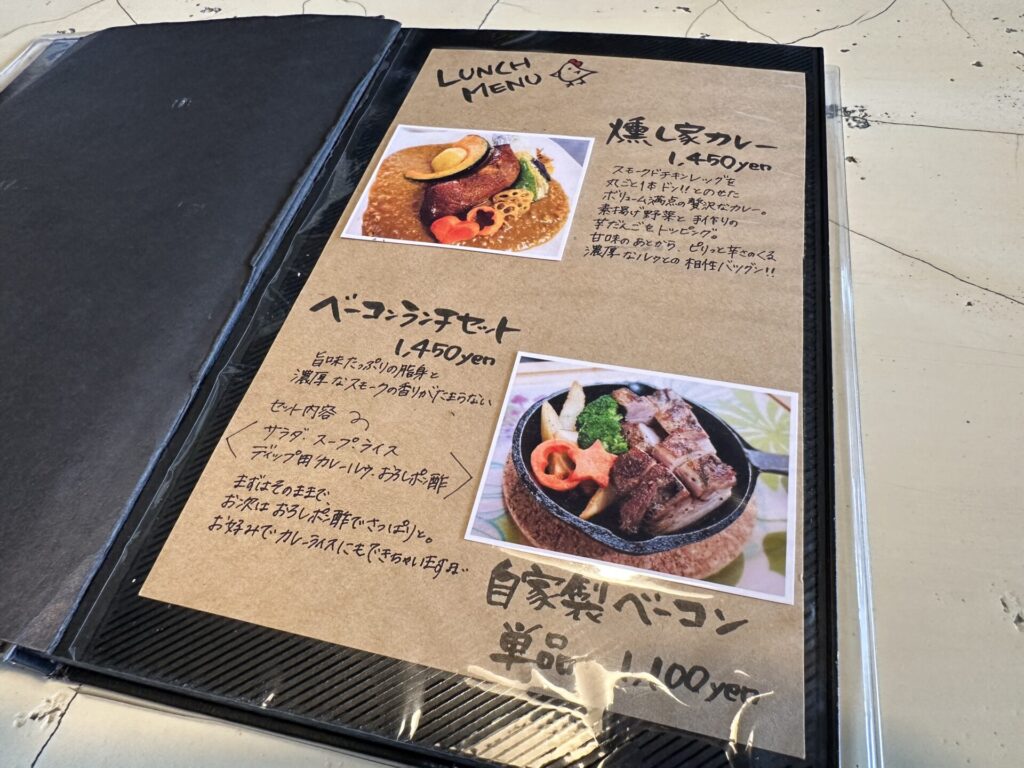 LUNCH
MENU
燻し家カレー
1,450yen
スモークドチキンレッグを
丸ごと1本ドン!!とのせた
ボリューム満点の贅沢なカレー。
素揚げ野菜と手作りの
芋だんごをトッピング。
甘味のあとから、ピリッと辛さのくる
濃厚なルゥとの相性バツグン!!
ベーコンランチセット
1,450yen
旨味たっぷりの脂身と
濃厚なスモークの香りがたまらない
セット内容
サラダ・スープ・ライス
ディップ用カレールウ、おろしポン酢
まずはそのままで、
お次はおろしポン酢でさっぱりと。
お好みでカレーライスにもできちゃいます
自家製ベーコン
単品 1,100yen